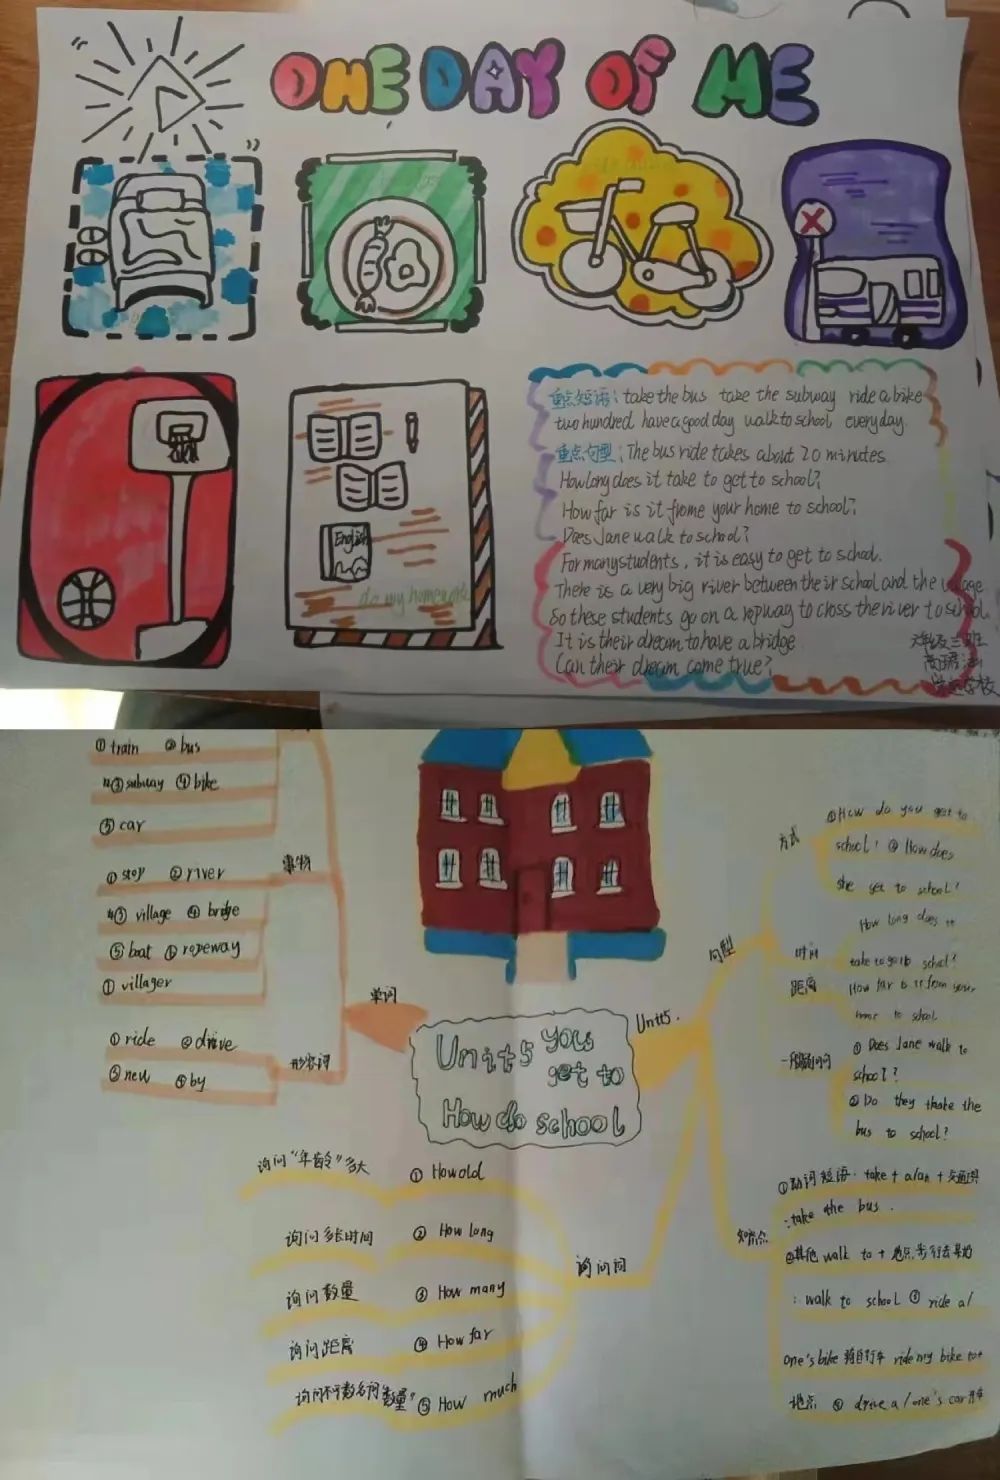 ONE DAY OF ME
English
do my homework
重点短语: take the bus take the subway ride a bike
two hundred have a good day walk to school everyday.
重点句型: The bus ride takes about 20 minutes.
How long does it take to get to school?
How far is it frome your home to school?
Does Jane walk to school?
For many students, it is easy to get to school.
There is a very big river between their school and the village
So these students go on a ropway to closs the river to school.
It is their dream to have a bridge
Can their dream come true?
三班
学校
①train ②bus
③subway ④bike
⑤car
事物
①stop ②river
③village ④bridge
⑤boat ⑥ropeway
① villager
单词
①ride ②drive
③new ④by
形容词
Unit5 you
get to
How do school
Unit5.
句型
方式
①How do you get to
school? ② How does
she get to school?
时间
How long does it
take to go to school?
距离
How far is it from your
home to school
一般疑问句
① Does Jane walk to
school?
② Do they thake the
bus to school?
知识点
①动词短语: take + a/an + 交通工具
: take the bus.
②其他 walk to + 地点
: walk to school ③ ride a/
one's bike 骑自行车 ride my bike to+
地点 ④ drive a/one's car 开车
询问词
询问"年龄"多大 ① How old
询问多长时间 ② How long
询问数量 ③ How many
询问距离 ④ How far
询问不可数名词"数量" ⑤ How much